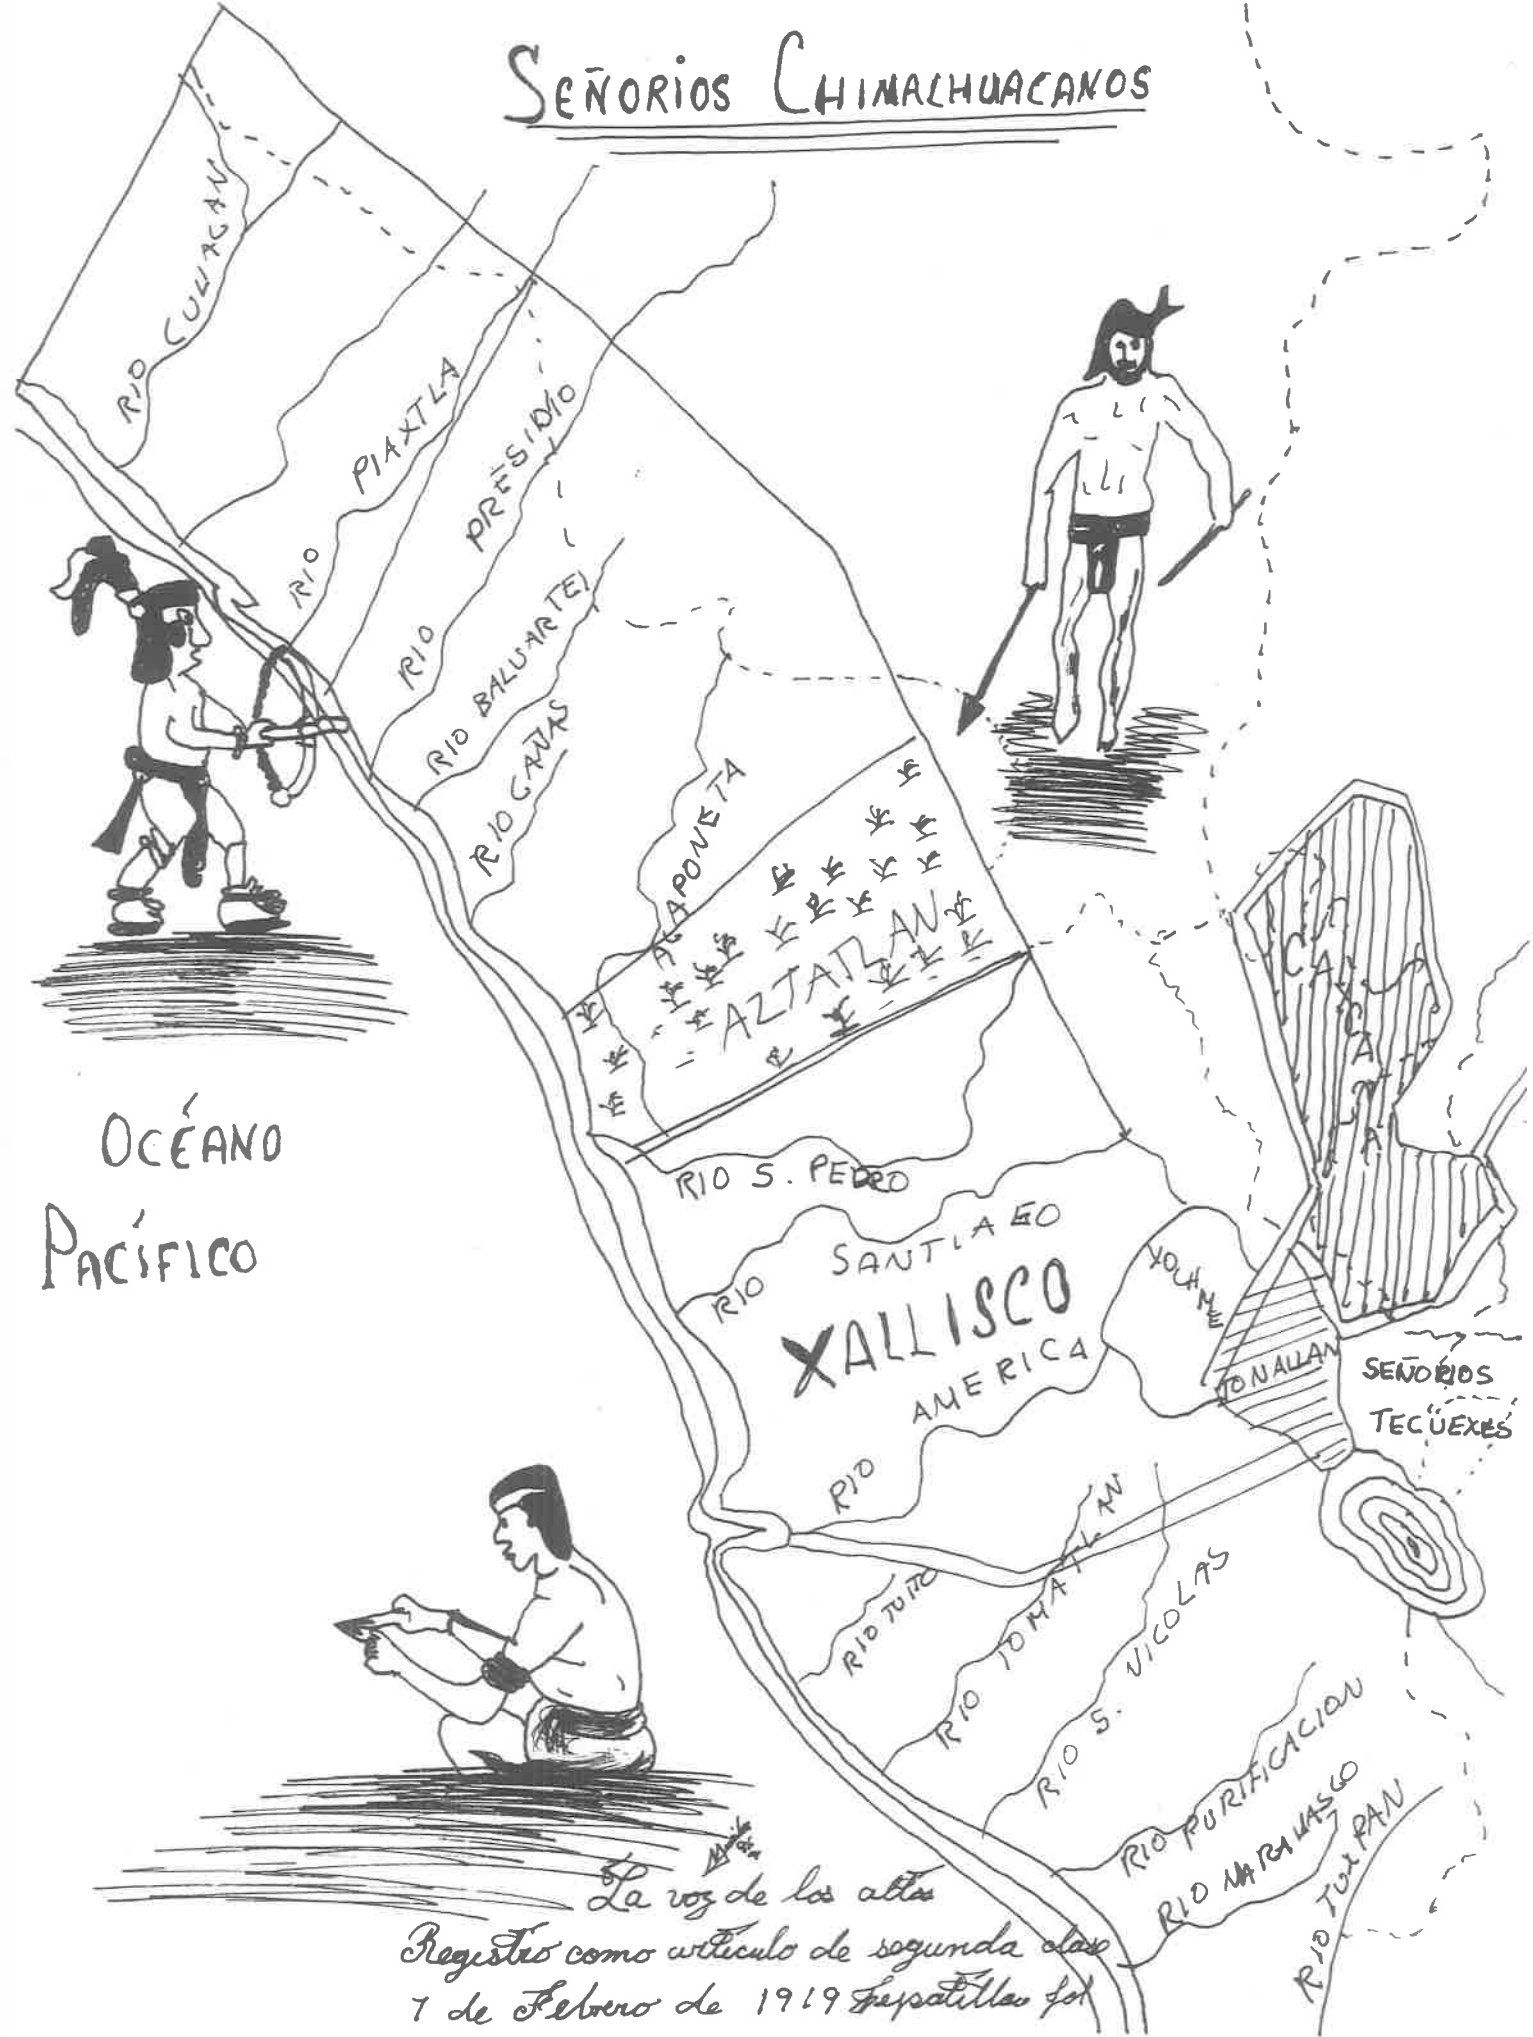 SEÑORIOS CHIMALHUACANOS
RIO CULIACAN
RIO PIAXTLA
RIO PRESIDIO
RIO BALUARTE
RIO CAÑAS
ACAPONETA
AZTATLAN
CAXCANA
OCÉANO
PACÍFICO
RIO S. PEDRO
RIO SANTIAGO
XALLISCO
XOCHME
TONALLAN
SEÑORIOS
TECÜEXES
RIO AMERICA
RIO TUITO
RIO TOMATLAN
RIO S. NICOLAS
RIO PURIFICACION
RIO MARAHASCO
RIO TUXPAN
La voz de los altos
Registro como articulo de segunda clase
7 de Febrero de 1919